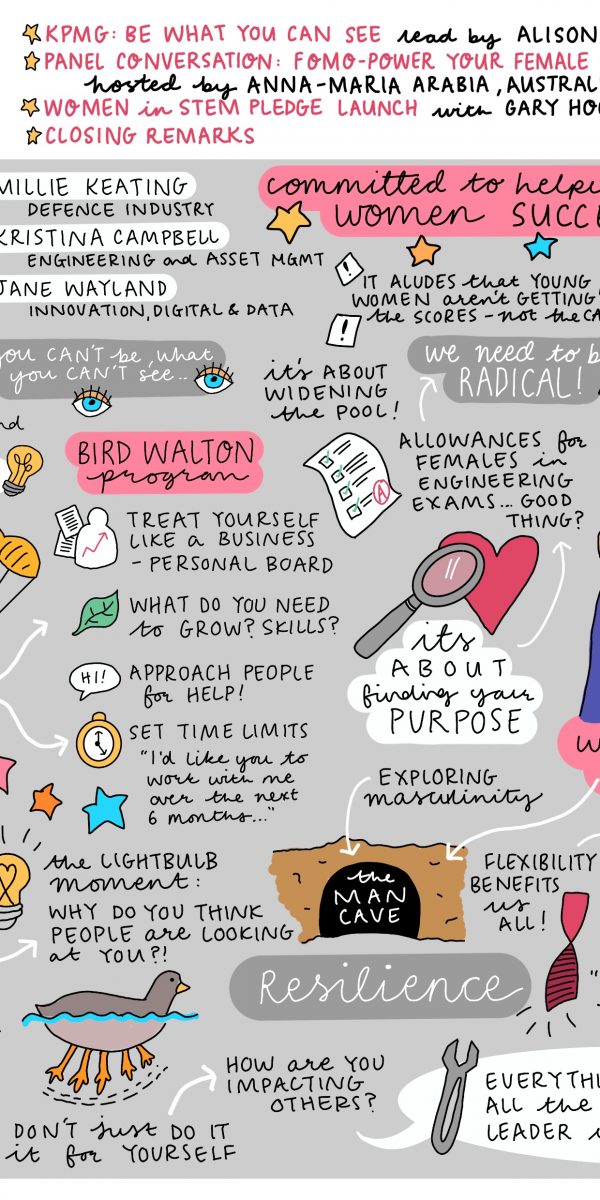 KPMG: BE WHAT YOU CAN SEE read by ALISON
PANEL CONVERSATION: FOMO-POWER YOUR FEMALE
hosted by ANNA-MARIA ARABIA, AUSTRAL
WOMEN in STEM PLEDGE LAUNCH with GARY HO
CLOSING REMARKS
MILLIE KEATING
DEFENCE INDUSTRY
KRISTINA CAMPBELL
ENGINEERING and ASSET MGMT
JANE WAYLAND
INNOVATION, DIGITAL & DATA
committed to helpi
WOMEN SUCCE
IT ALUDES that YOUNG
WOMEN aren't GETTING
the SCORES - not the CA
you CAN'T be, what
you CAN'T see...
it's ABOUT
WIDENING
the POOL!
we need to b
RADICAL!
nd
BIRD WALTON
program
TREAT YOURSELF
LIKE A BUSINESS
- PERSONAL BOARD
WHAT DO YOU NEED
to GROW? SKILLS?
HI!
APPROACH PEOPLE
for HELP!
SET TIME LIMITS
"I'd like you to
work with me
over the next
6 months..."
A
ALLOWANCES for
FEMALES in
ENGINEERING
EXAMS... GOOD
THING?
its
ABOUT
finding your
PURPOSE
W
EXPLORING
masculinity
the
MAN
CAVE
FLEXIBILITY
BENEFITS
us
ALL!
the LIGHTBULB
moment:
WHY DO YOU THINK
PEOPLE are LOOKING
at YOU?!
Resilience
HOW are YOU
IMPACTING
OTHERS?
DON'T just DO IT
it for YOURSELF
EVERYTHI
ALL the
LEADER i